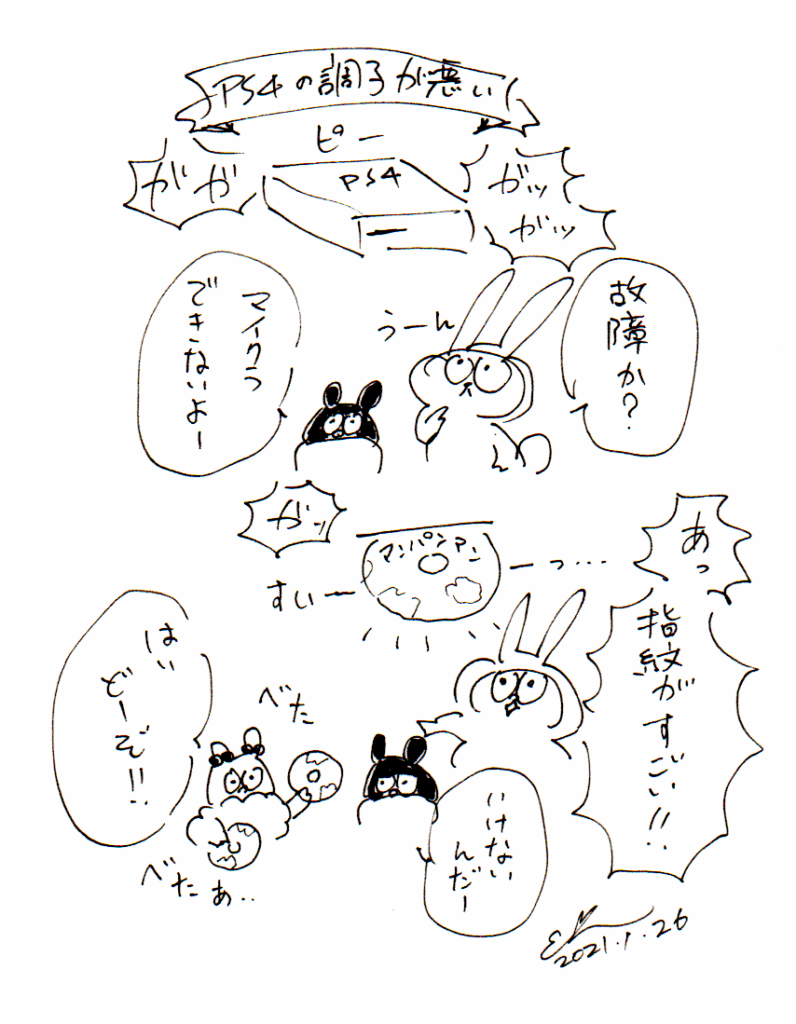 PS4の調子が悪い
ピー
ガガ
PS4
ガッ
ガッ
故障か?
うーん
マイクラ
できないよー
ガッ
マンパンアン
すいーーっ…
あっ
指紋が
すごい!!
はい
どーぞ!!
べた
べたぁ..
いけない
んだー
2021.1.26